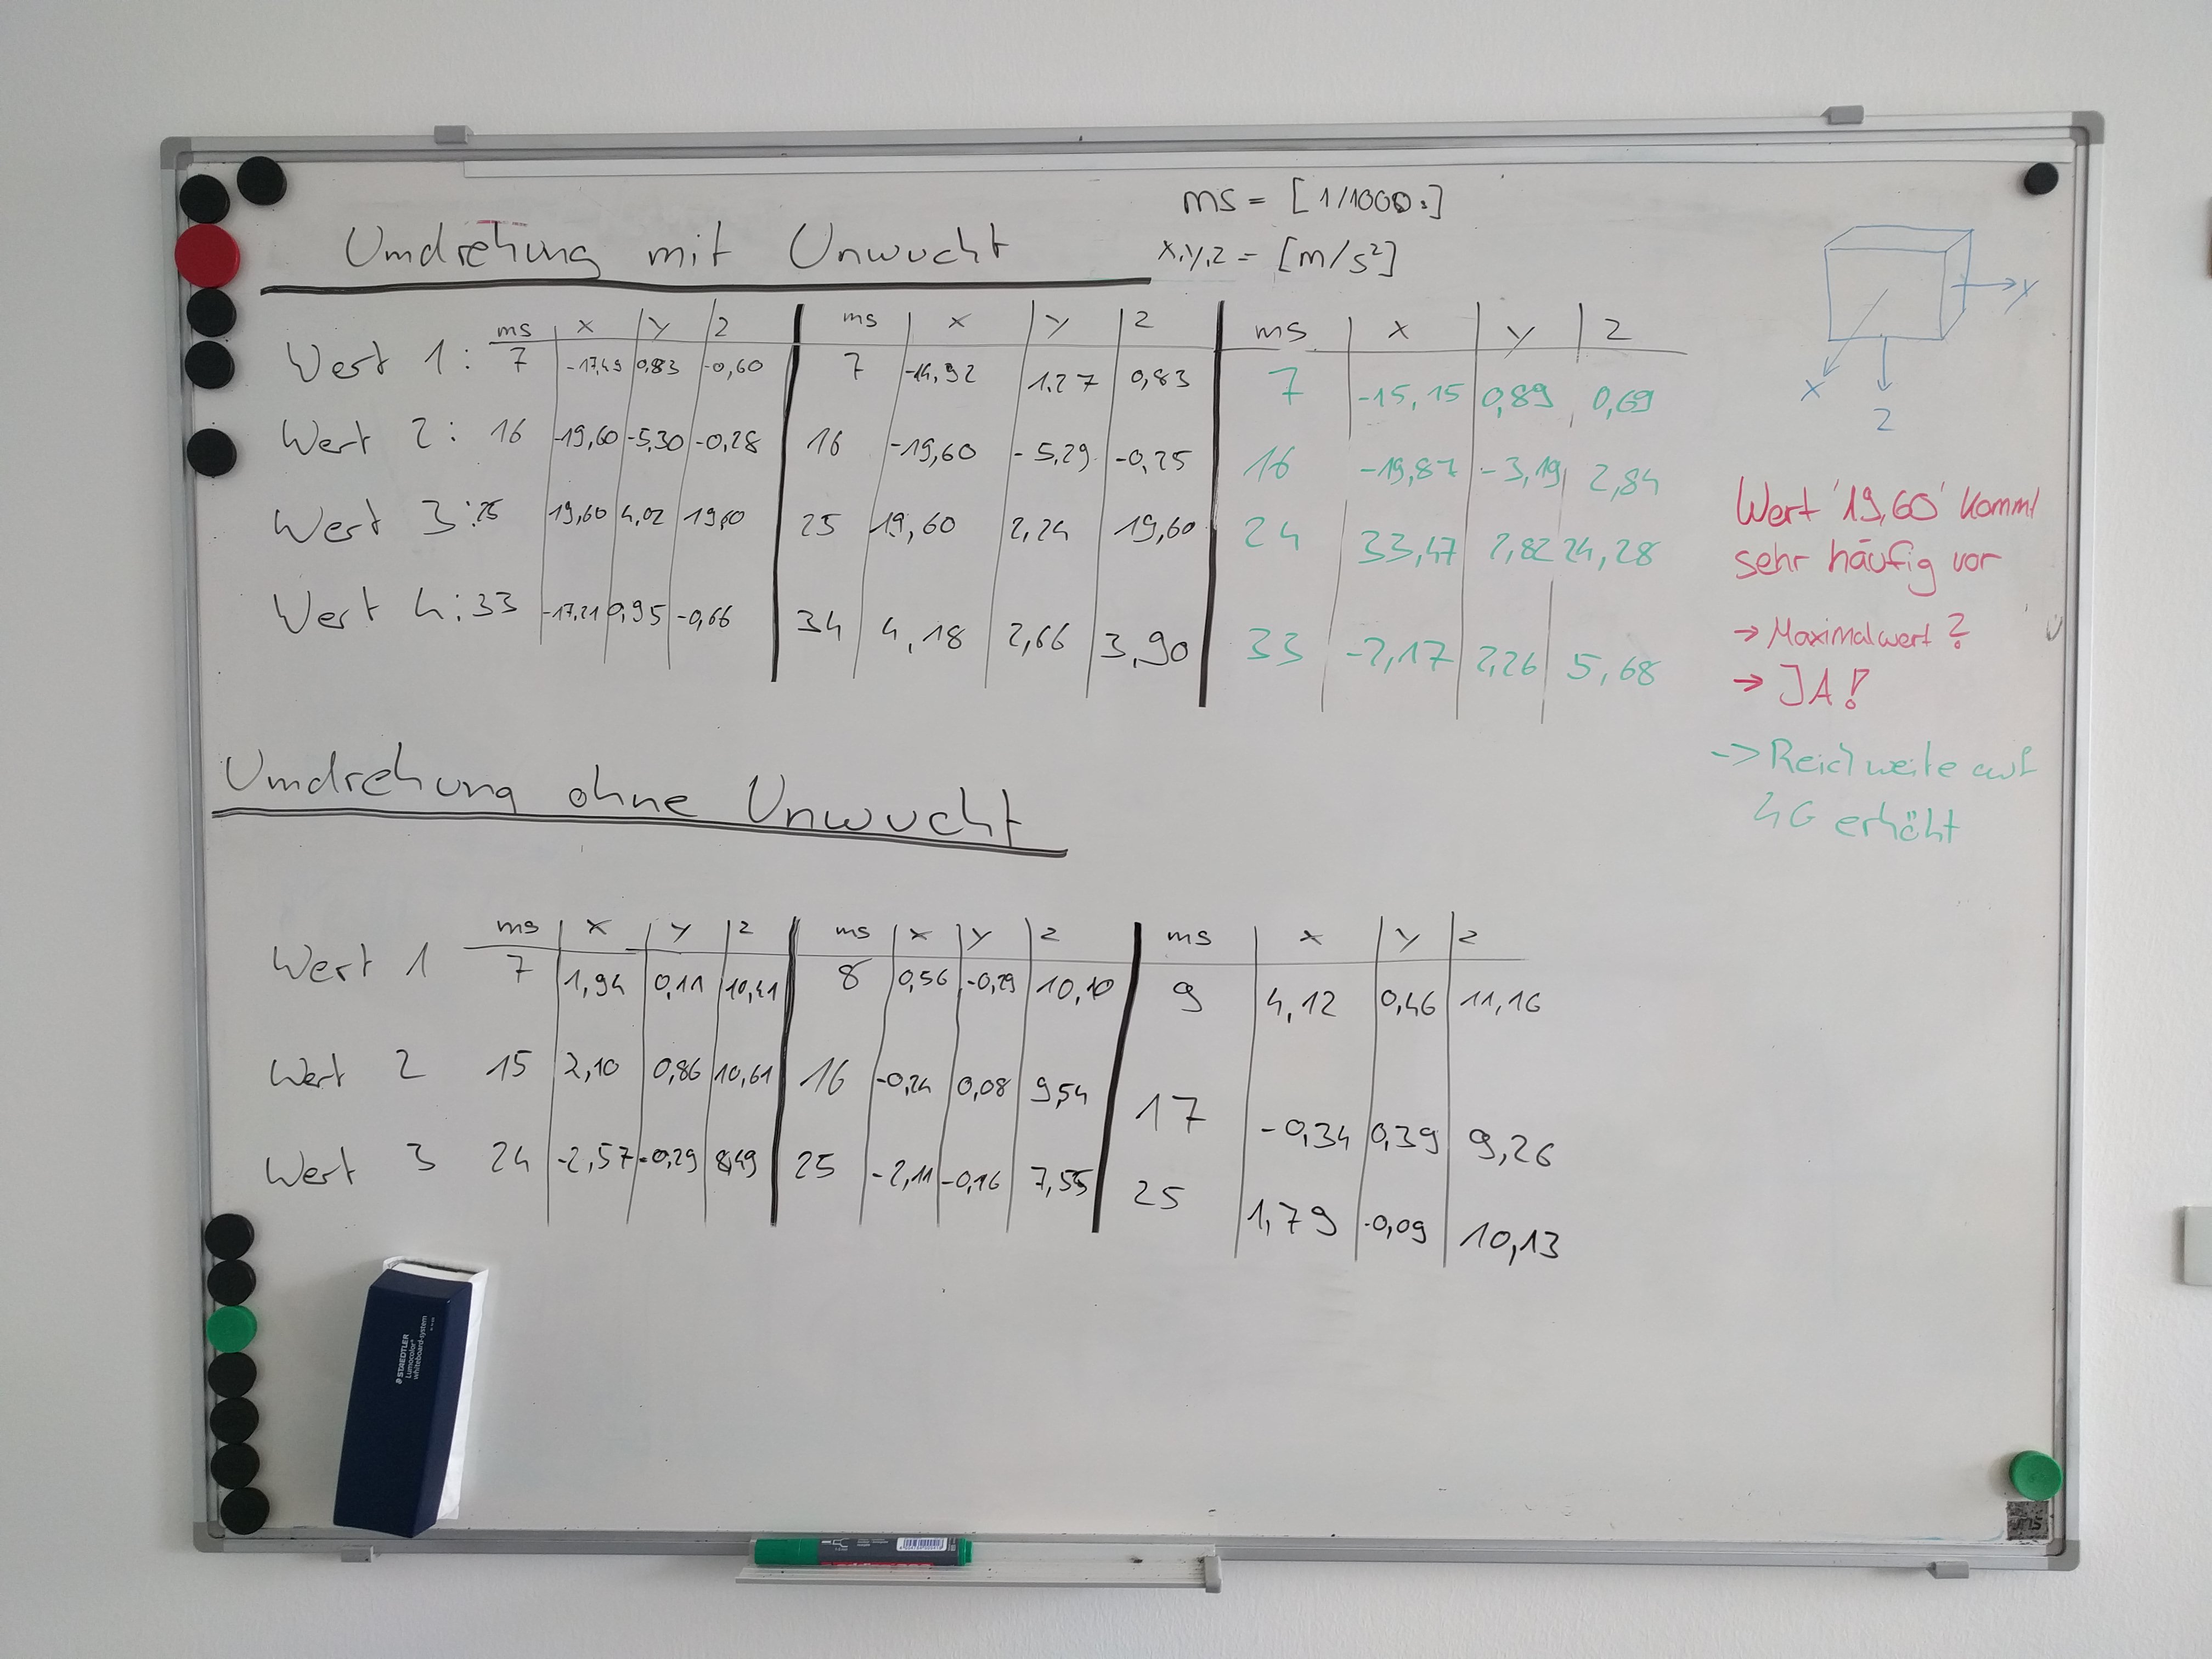 ms = [1/1000.]
Umdrehung mit Unwucht
x,y,z = [m/s²]
ms x y z ms x y z ms x y z
Wert 1: 7 -17,49 0,83 -0,60 7 -14,92 1,27 0,83 7 -15,15 0,89 0,69
Wert 2: 16 -19,60 -5,30 -0,28 16 -19,60 -5,29 -0,25 16 -19,87 -3,19 2,84
Wert 3: 25 19,60 4,02 19,60 25 19,60 2,24 19,60 24 33,47 2,82 24,28
Wert 4: 33 -17,21 0,95 -0,66 34 4,18 2,66 3,90 33 -2,17 2,26 5,68
y
x
z
Wert '19,60' kommt
sehr häufig vor
→ Maximalwert?
→ JA!
-> Reichweite auf
4G erhöht
Umdrehung ohne Unwucht
ms x y z ms x y z ms x y z
Wert 1 7 1,94 0,11 10,41 8 0,56 -0,29 10,10 9 4,12 0,46 11,16
Wert 2 15 2,10 0,86 10,61 16 -0,24 0,08 9,54 17 -0,34 0,39 9,26
Wert 3 24 -2,57 -0,29 8,49 25 -2,11 -0,16 7,55 25 1,79 -0,09 10,13
STAEDTLER
Lumocolor
whiteboard-system